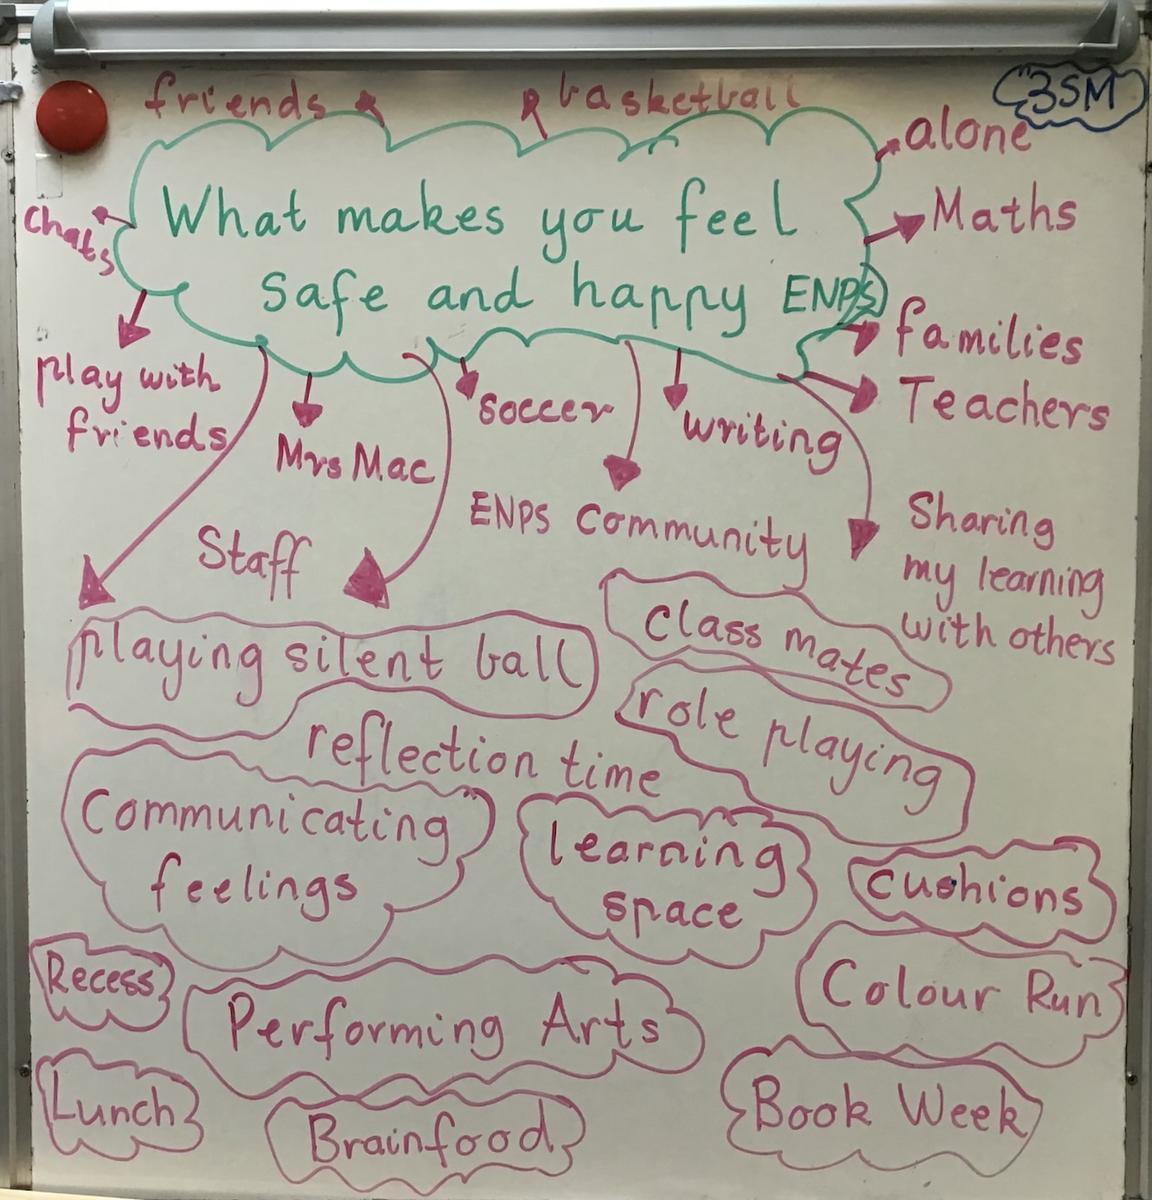 friends
basketball
3SM
alone
chats
What makes you feel
Safe and happy ENPS
Maths
families
Teachers
play with
friends
Mrs Mac
soccer
writing
Staff
ENPS Community
Sharing
my learning
with others
playing silent ball
class mates
reflection time
role playing
Communicating
feelings
learning
space
cushions
Recess
Performing Arts
Colour Run
Lunch
Brainfood
Book Week